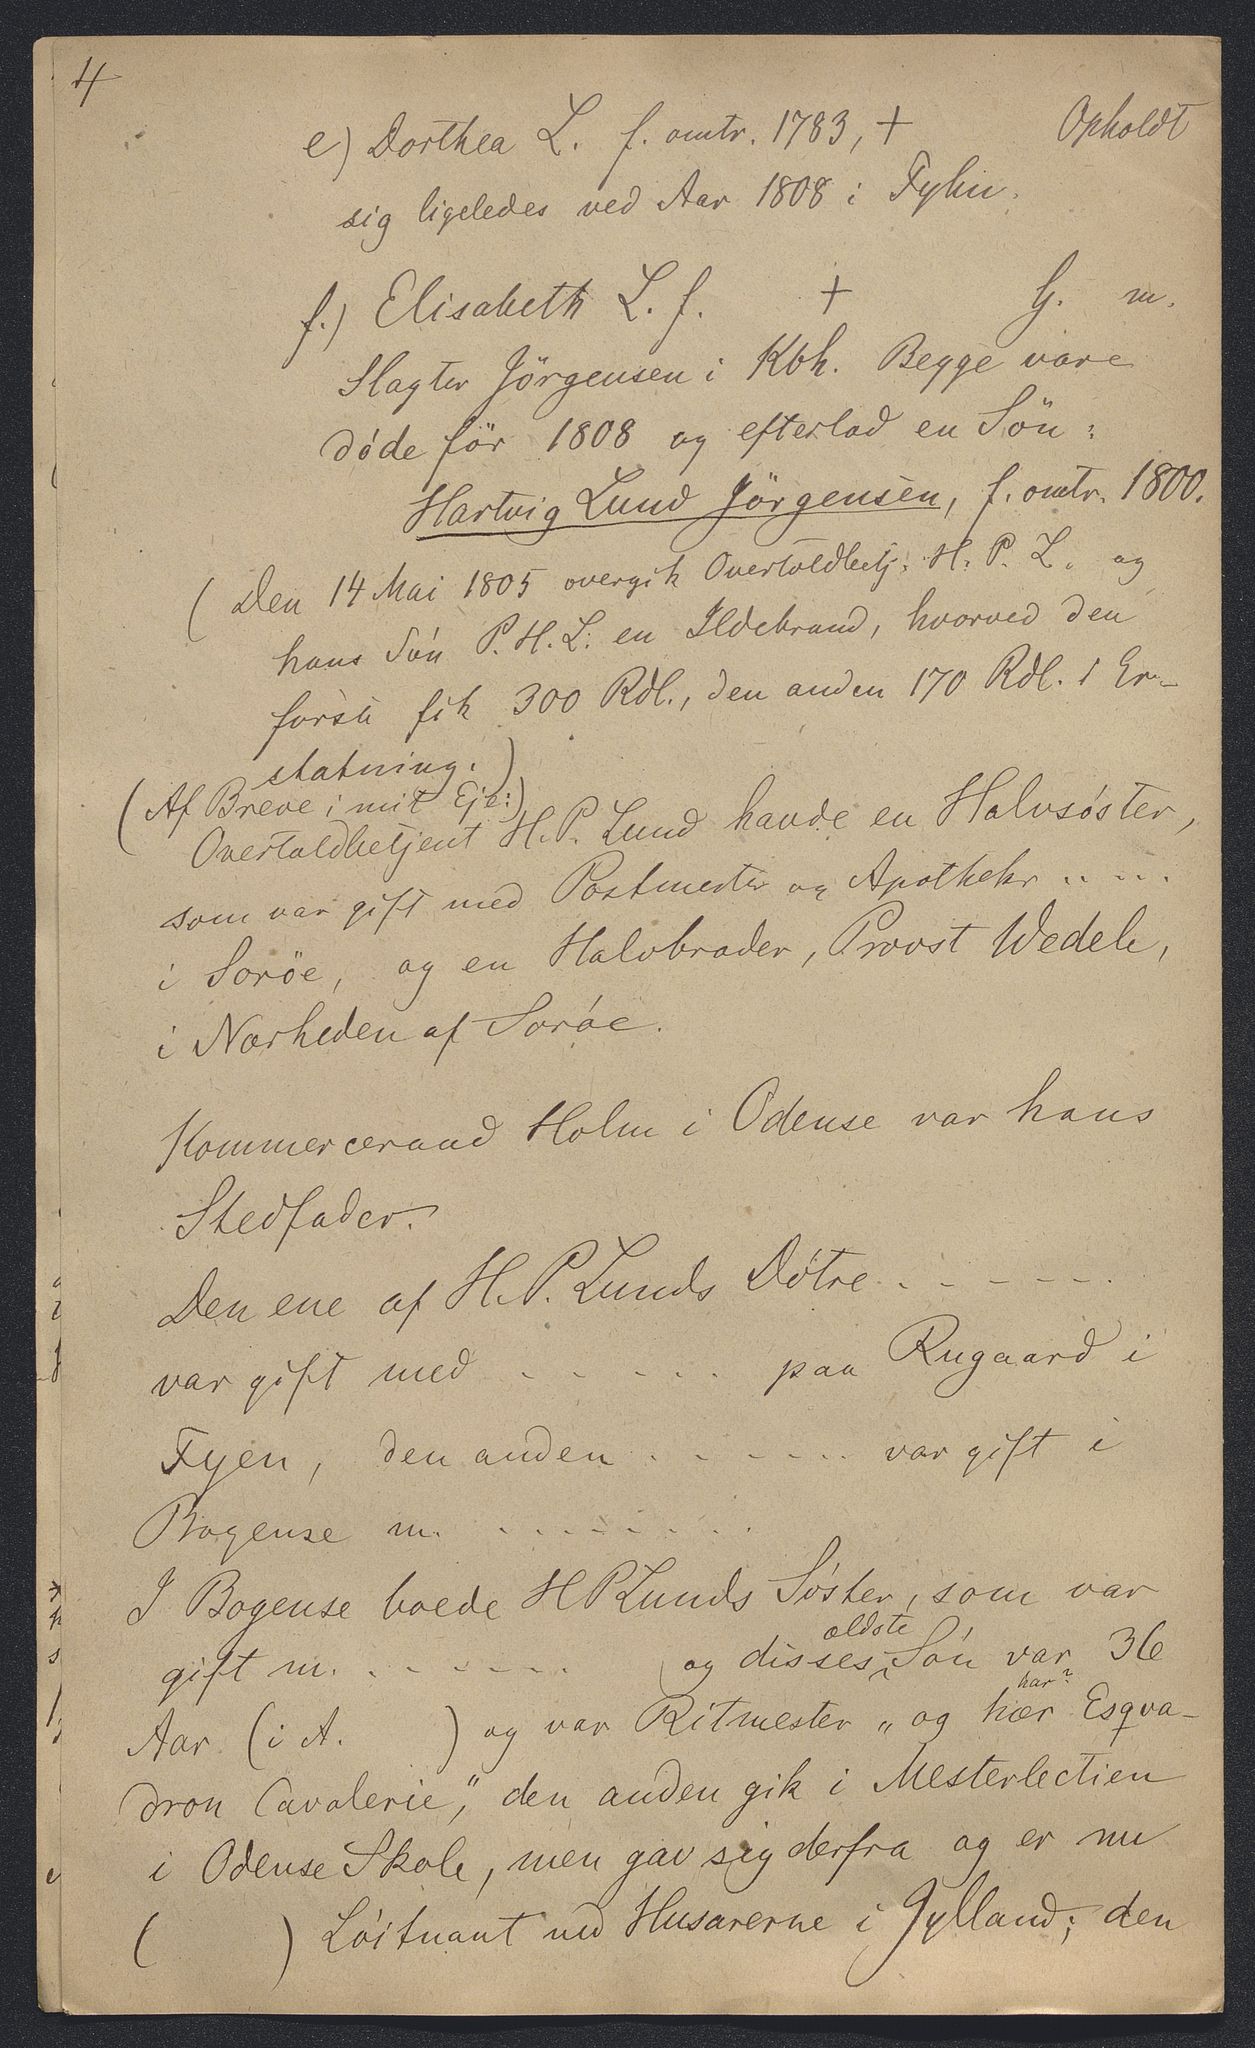 4
e) Dorthea L. f. omtr. 1783, + Opholdt
sig ligeledes ved Aar 1808 i Fyhn.
f.) Elisabeth L. f. + G. m.
Slagter Jörgensen i Kbh. Begge vare
døde før 1808 og efterlod en Sön:
Hartvig Lund Jörgensen, f. omtr. 1800.
(Den 14 Mai 1805 overgik Overtoldbetj. H. P. L. og
hans Søn P. H. L. en Ildebrand, hvorved den
første fik 300 Rdl., den anden 170 Rdl. i Er-
statning.)
(Af Breve i mit Eje:)
Overtoldbetjent H. P. Lund havde en Halvsøster,
som var gift med Postmester og Apotheker .. ...
i Soröe, og en Halvbroder, Provst Wedele,
i Nærheden af Sorøe.
Kommerceraad Holm i Odense var hans
Stedfader.
Den ene af H. P. Lunds Døtre . . . . . .
var gift med . . . . . paa Rugaard i
Fyen, den anden . . . . . . var gift i
Bogense m. . . . . . . . .
I Bogense boede H P Lunds Søster, som var
gift m. . . . . . . og disses ældste Søn var 36
Aar (i A. ) og var Ritmester „og hær har? Esqva-
dron Cavalerie", den anden gik i Mesterlectien
i Odense Skole, men gav sig derfra og er nu
( ) Løitnant ved Husarerne i Jylland; den